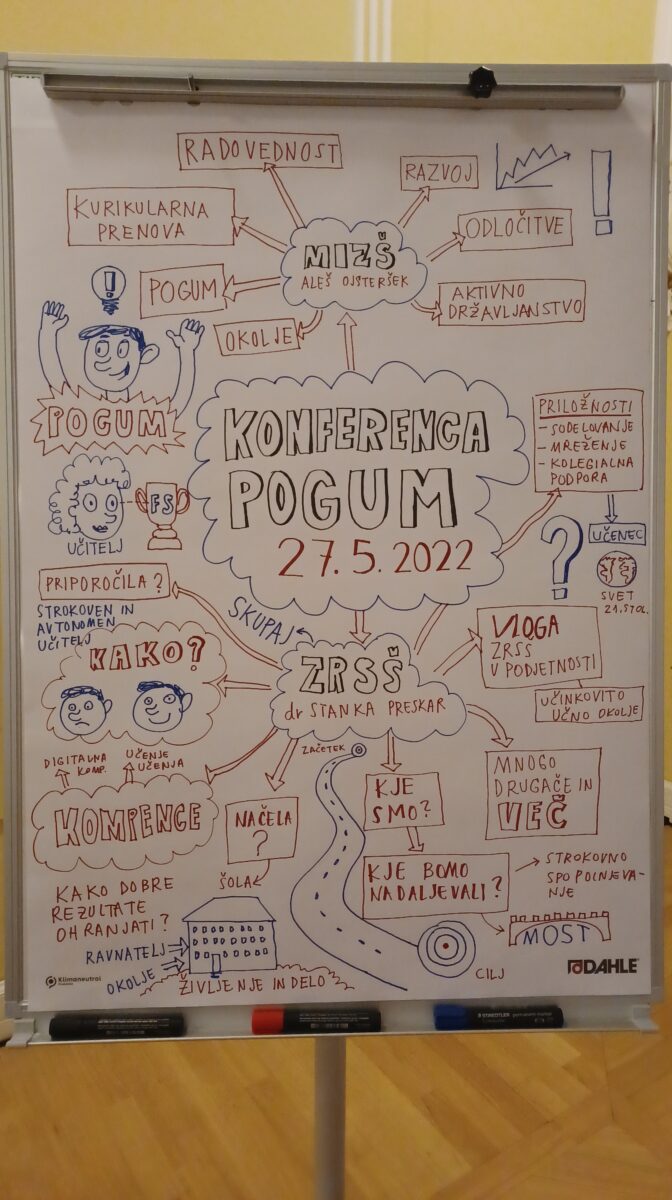 RADOVEDNOST
RAZVOJ
KURIKULARNA
PRENOVA
MIZŠ
ALEŠ OJSTERŠEK
ODLOČITVE
POGUM
AKTIVNO
DRŽAVLJANSTVO
OKOLJE
POGUM
KONFERENCA
POGUM
27.5.2022
PRILOŽNOSTI
- SODELOVANJE
- MREŽENJE
- KOLEGIALNA
PODPORA
UČENEC
SVET
21.STOL.
FS
UČITELJ
PRIPOROČILA?
STROKOVEN IN
AVTONOMEN
UČITELJ
SKUPAJ
KAKO?
ZRSŠ
dr STANKA PRESKAR
VLOGA
ZRSŠ
V PODJETNOSTI
UČINKOVITO
UČNO OKOLJE
DIGITALNA
KOMP.
UČENJE
UČENJA
KOMPENCE
NAČELA
?
ZAČETEK
KJE
SMO?
MNOGO
DRUGAČE IN
VEČ
KJE BOMO
NADALJEVALI?
STROKOVNO
SPOPOLNJEVA-
NJE
MOST
KAKO DOBRE
REZULTATE
OHRANJATI?
ŠOLA
RAVNATELJ
OKOLJE
ŽIVLJENJE IN DELO
CILJ
Klimaneutral
DAHLE
STAEDTLER permanent marker